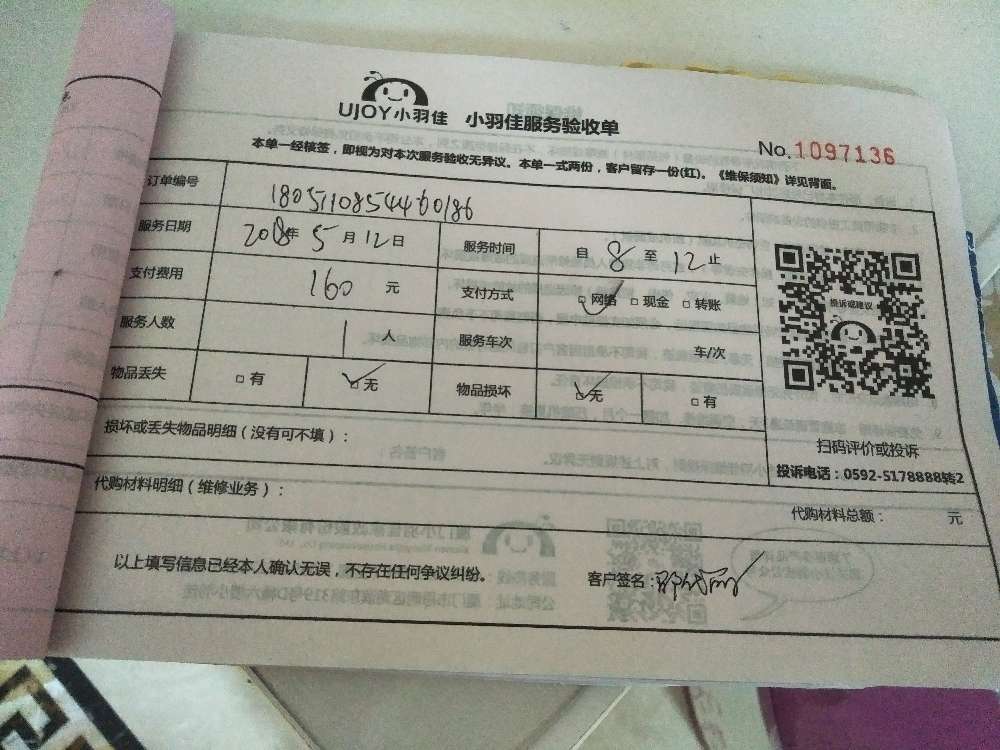 UJOY小羽佳 小羽佳服务验收单
No.1097136
本单一经核签，即视为对本次服务验收无异议。本单一式两份，客户留存一份(红)。《维保须知》详见背面。
订单编号 1805110854460186
服务日期 2018年5月12日 服务时间 自8至12止
支付费用 160元 支付方式 网络 现金 转账
服务人数 1人 服务车次 车/次
物品丢失 有 无 物品损坏 无 有
投诉或建议
扫码评价或投诉
投诉电话：0592-5178888转2
损坏或丢失物品明细（没有可不填）：
代购材料明细（维修业务）：
代购材料总额： 元
以上填写信息已经本人确认无误，不存在任何争议纠纷。 客户签名：